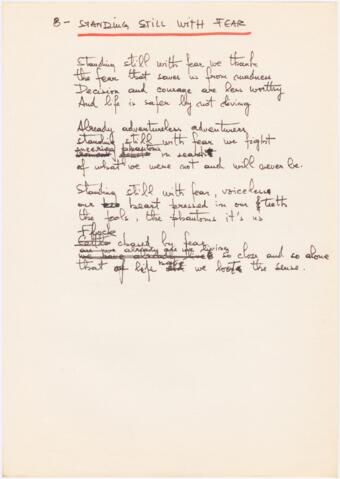 8 - STANDING STILL WITH FEAR
Standing still with fear we thank
the fear that saves us from madness
Decision and courage are less worthy
And life is safer by not living
Already adventureless adventurers
standing still with fear we fight
in search
of what we were not and will never be.
Standing still with fear, voiceless
our heart pressed in our teeth
the fools, the phantoms it's us
Flock
Cattle chased by fear
an we already are we living
we have already lived so close and so alone
that of life we lost the sense.